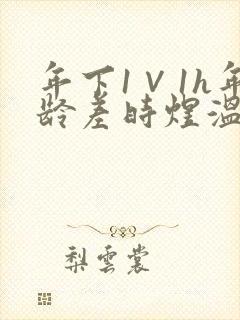 年下1V1h年
龄差時煜溫
梨雲裳